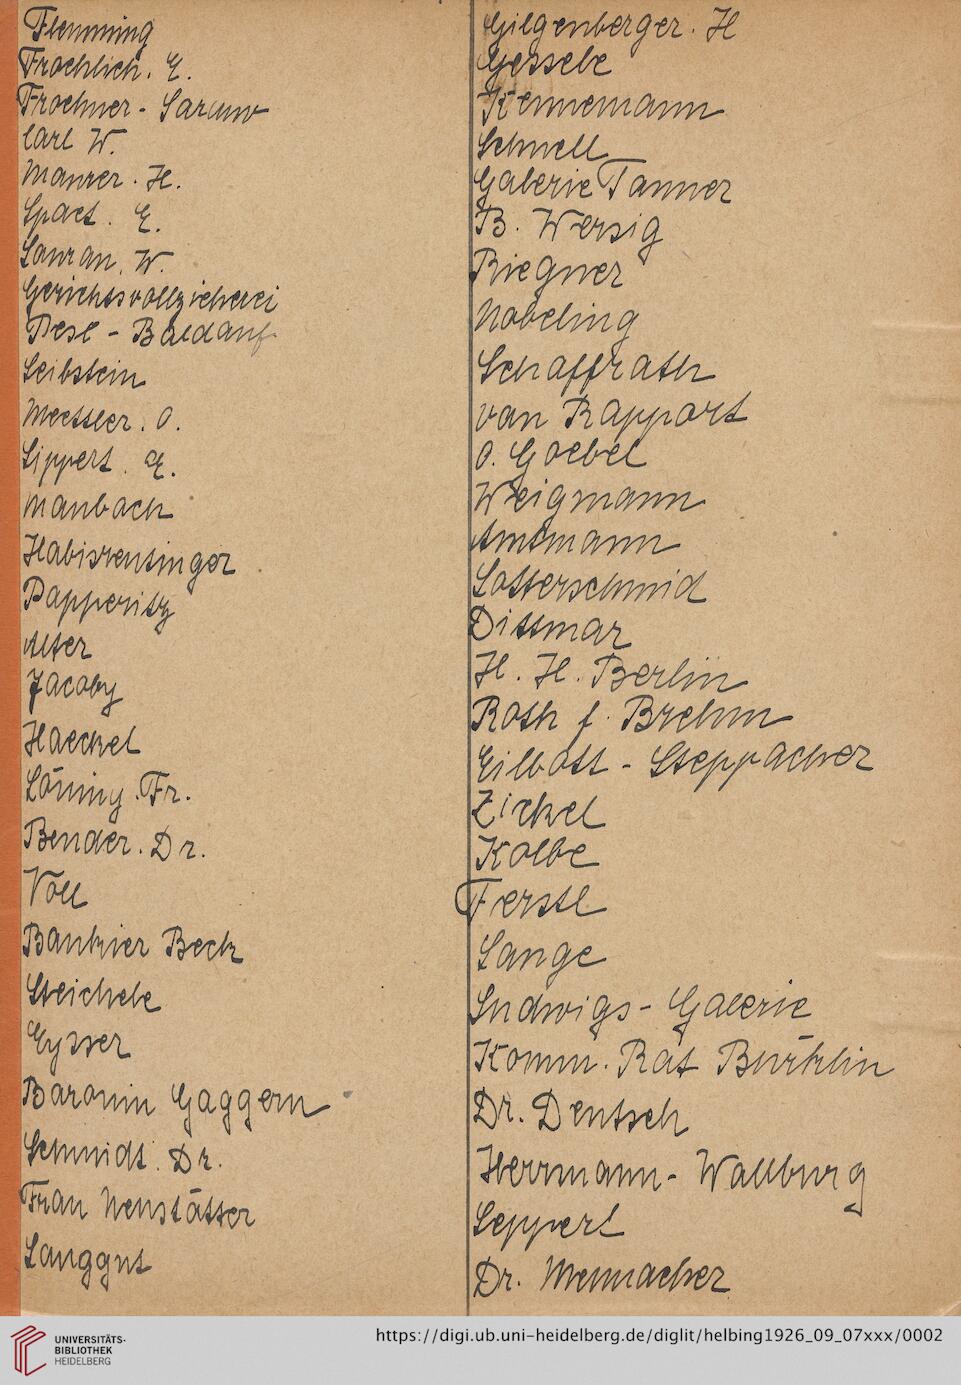 Flemming
Froehlich. E.
Froehner-Sarauw
Carl W.
Maurer. H.
Spaet. E.
Lauran. W.
Gerichtsvollzieherei
Pesl-Baldauf
Leibstein
Lippert. E.
Manbach
Habisreutinger
Papperitz
Alter
Jacoby
Haeckel
Löning. Fr.
Bender. Dr.
Voll
Bankier Beck
Steichele
Eysser
Baronin Gaggern
Schmidt. Dr.
Frau Neustätter
Langgut
Gilgenberger. H
Gessele
Kennemann
Schnell
Galerie Tanner
B. Wersig
Riegner
Nobeling
Schaffrath
van Rapport
O. Goebel
Weigmann
Amtmann
Lotterschmid
Dittmar
H. H. Berlin
Roth f. Brehm
Eilbott-Steppacher
Zickel
Kolbe
Ferstl
Lange
Ludwigs-Galerie
Komm. Rat Bürklin
Dr. Deutsch
Herrmann-Wallburg
Leppert
Dr.
UNIVERSITÄTS-
BIBLIOTHEK
HEIDELBERG
https://digi.ub.uni-heidelberg.de/diglit/helbing1926_09_07xxx/0002